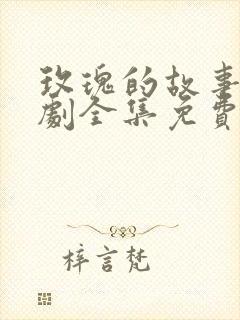 玫瑰的故事
劇全集免費
梓言梵